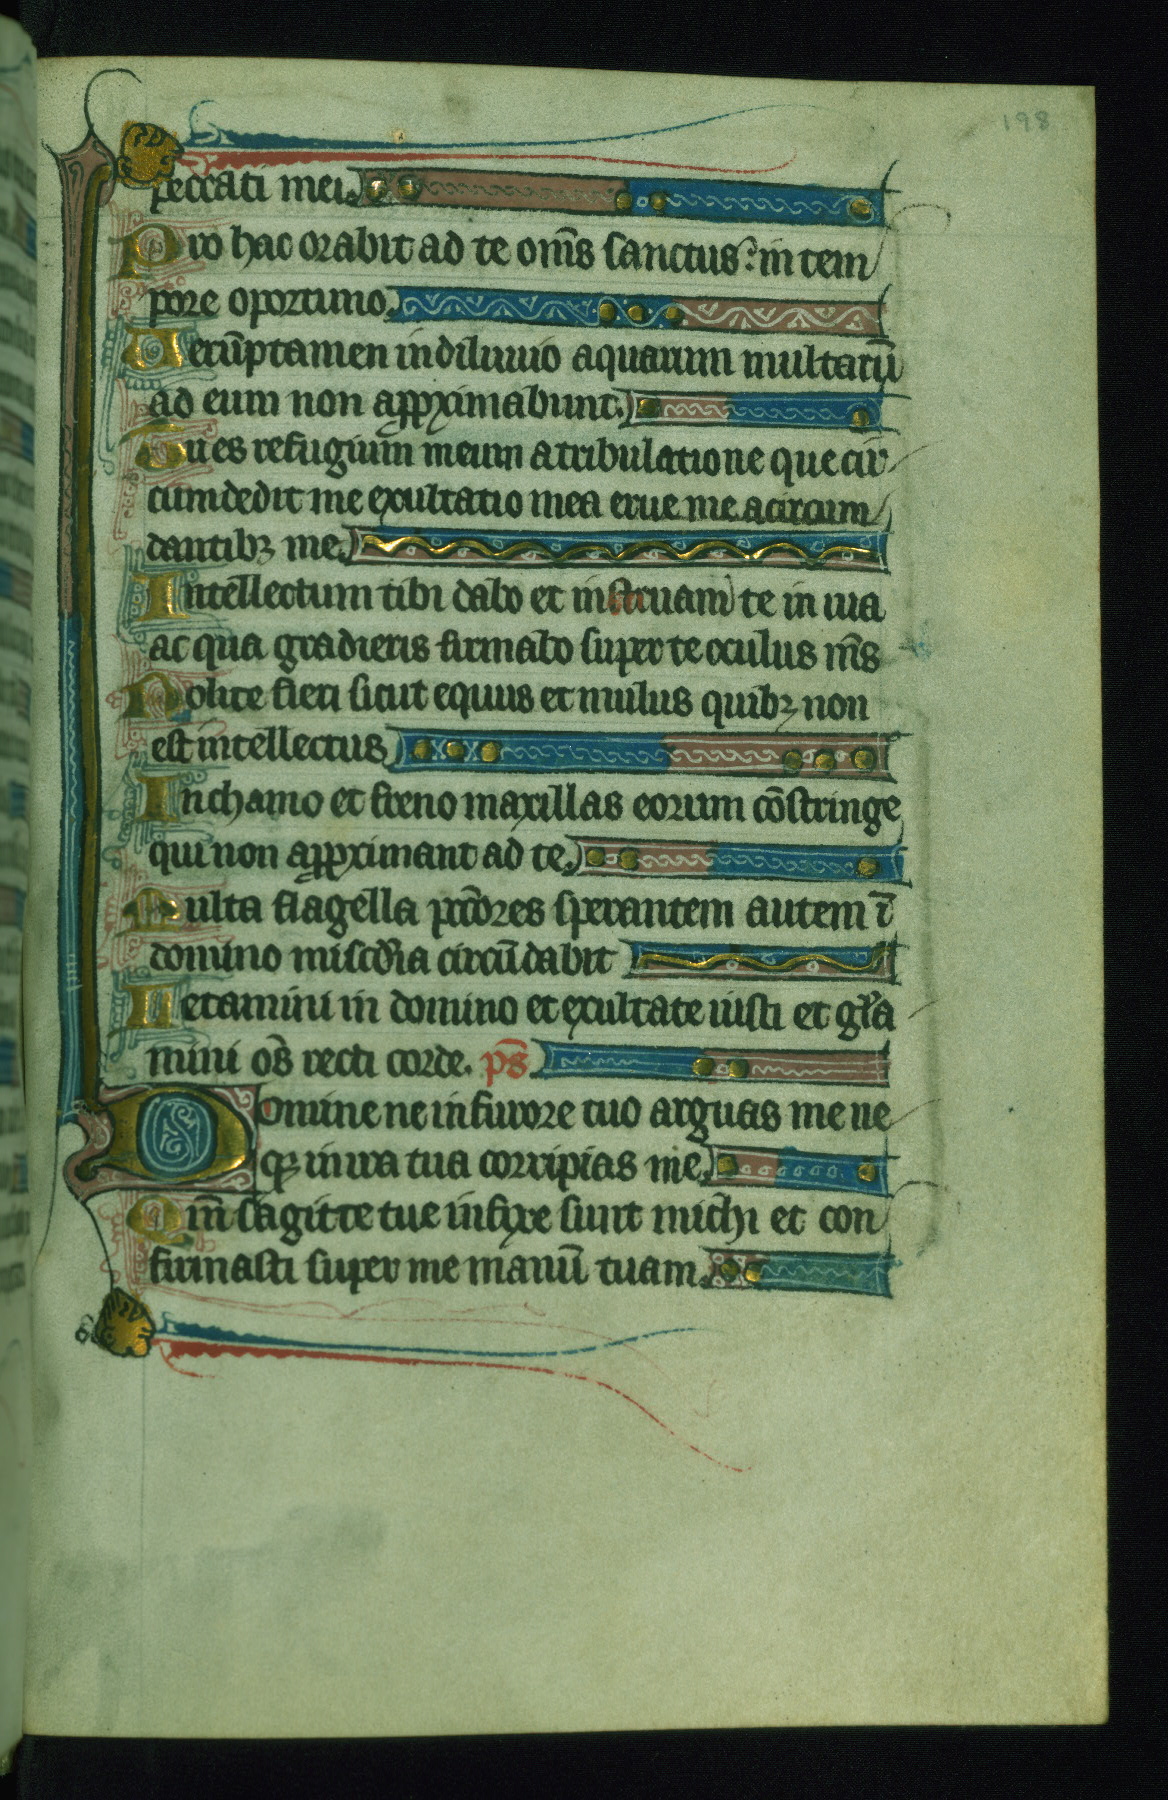 198
peccati mei.
Pro hac orabit ad te om̄s sanctus: in tem
pore oportuno.
Uerūptamen in diluuio aquarum multarū
ad eum non apꝓximabunt.
Tu es refugium meum a tribulatione que cir
cumdedit me exultatio mea erue me a circum
dantibꝫ me.
Intellectum tibi dabo et instruam te in uia
ac qua gradieris firmabo super te oculus m̄s
Nolite fieri sicut equus et mulus quibꝫ non
est intellectus
In chamo et freno maxillas eorum cōstringe
qui non apꝓximant ad te.
Multa flagella pctōres sperantem autem ī
domino miscd̄ia circūdabit
Letamini in domino et exultate iusti et gl̄a
mini om̄s recti corde. ps̄
Domine ne in furore tuo arguas me ne
qꝫ in ira tua corripias me.
Qm̄ sagitte tue infixe sunt michi et con
firmasti super me manū tuam.